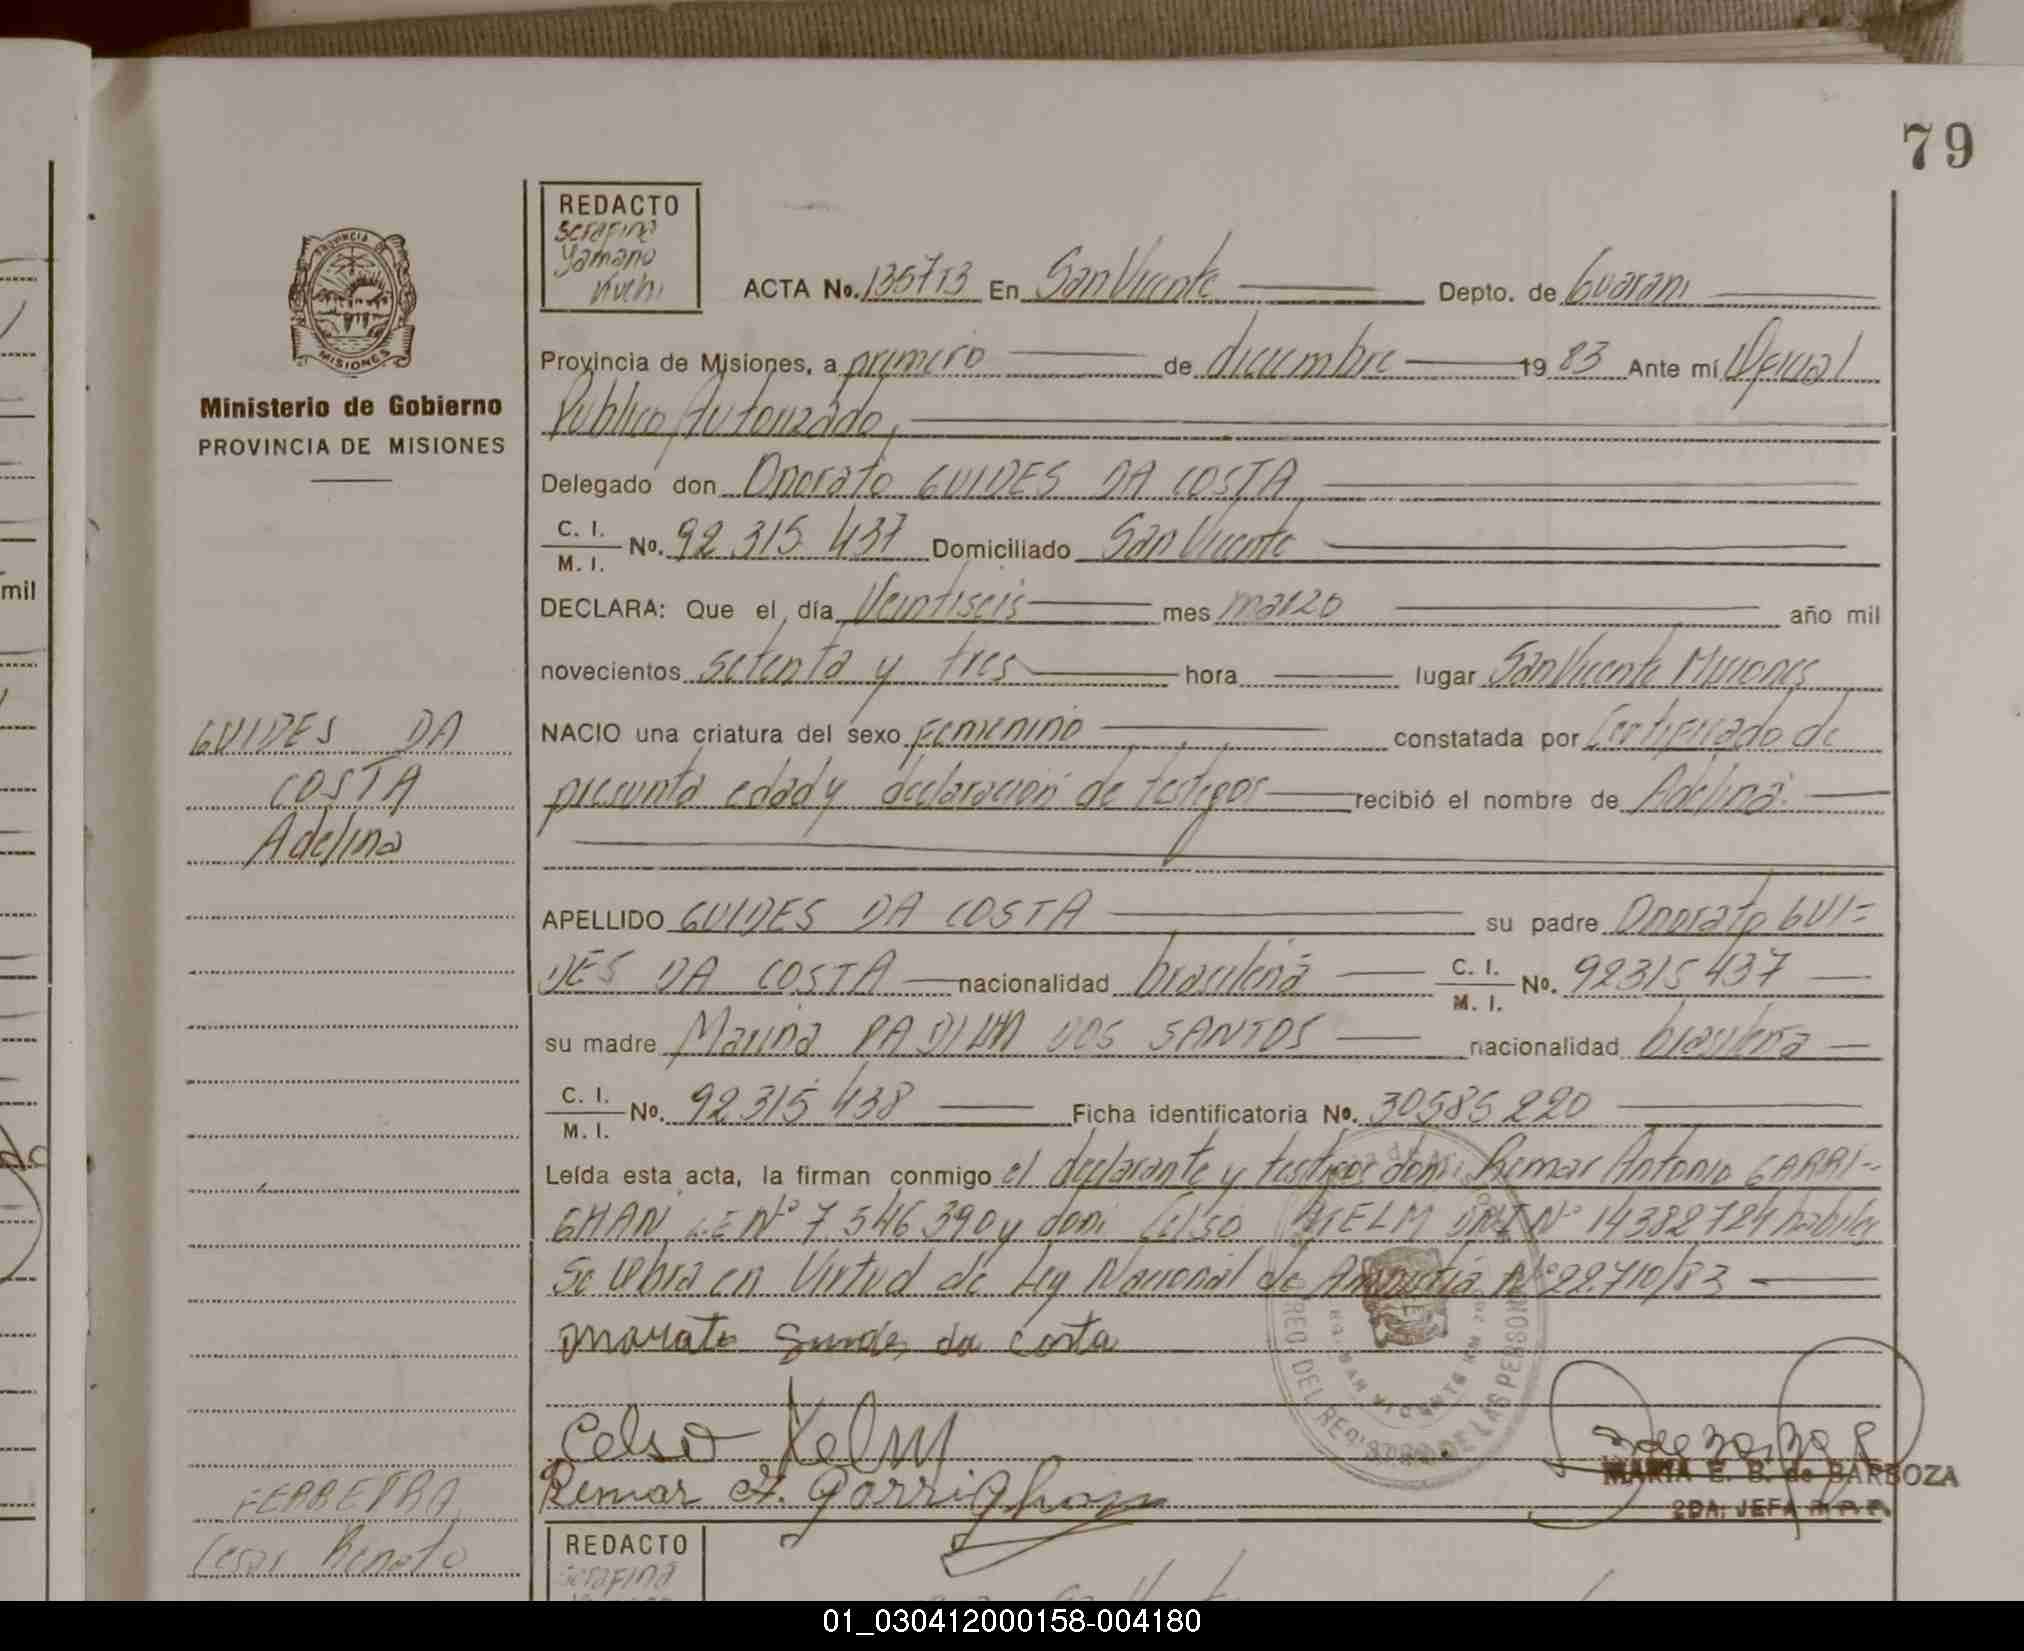 79
REDACTO
Serafina
Yamano
ACTA No. 135713 En San Vicente Depto. de Guarani
PROVINCIA DE
MISIONES
Provincia de Misiones, a primero de diciembre 1983 Ante mí Oficial
Público Autorizado,
Ministerio de Gobierno
PROVINCIA DE MISIONES
Delegado don Onorato GUIDES DA COSTA
C. I.
M. I. No. 92 315 437 Domiciliado San Vicente
DECLARA: Que el día Veintiseis mes marzo año mil
novecientos setenta y tres hora lugar San Vicente Misiones
NACIO una criatura del sexo femenino constatada por Certificado de
presunta edad y declaración de testigos recibió el nombre de Adelina
GUIDES DA
COSTA
Adelina
APELLIDO GUIDES DA COSTA su padre Onorato GUI=
DES DA COSTA nacionalidad brasileña C. I. M. I. No. 92315437
su madre Marina PADILHA DOS SANTOS nacionalidad brasileña
C. I.
M. I. No. 92315438 Ficha identificatoria No. 30585220
Leída esta acta, la firman conmigo el declarante y testigos don: Remar Antonio GARRI-
GHAN L.E Nº 7 546 390 y don: Celso HELM DNI Nº 14382724 habiles
Se labra en Virtud de Ley Nacional de Amnistia Nº 22.710/83
onorato Guides da Costa
Celso Helm
Remar A. Garrighan
REG. DEL REG. DE LAS PERSONAS
SAN VICENTE
MARIA E. B. de BARBOZA
2DA. JEFA R. P. P.
FERREIRA
Cesar Renato
REDACTO
Serafina
mil
01_030412000158-004180